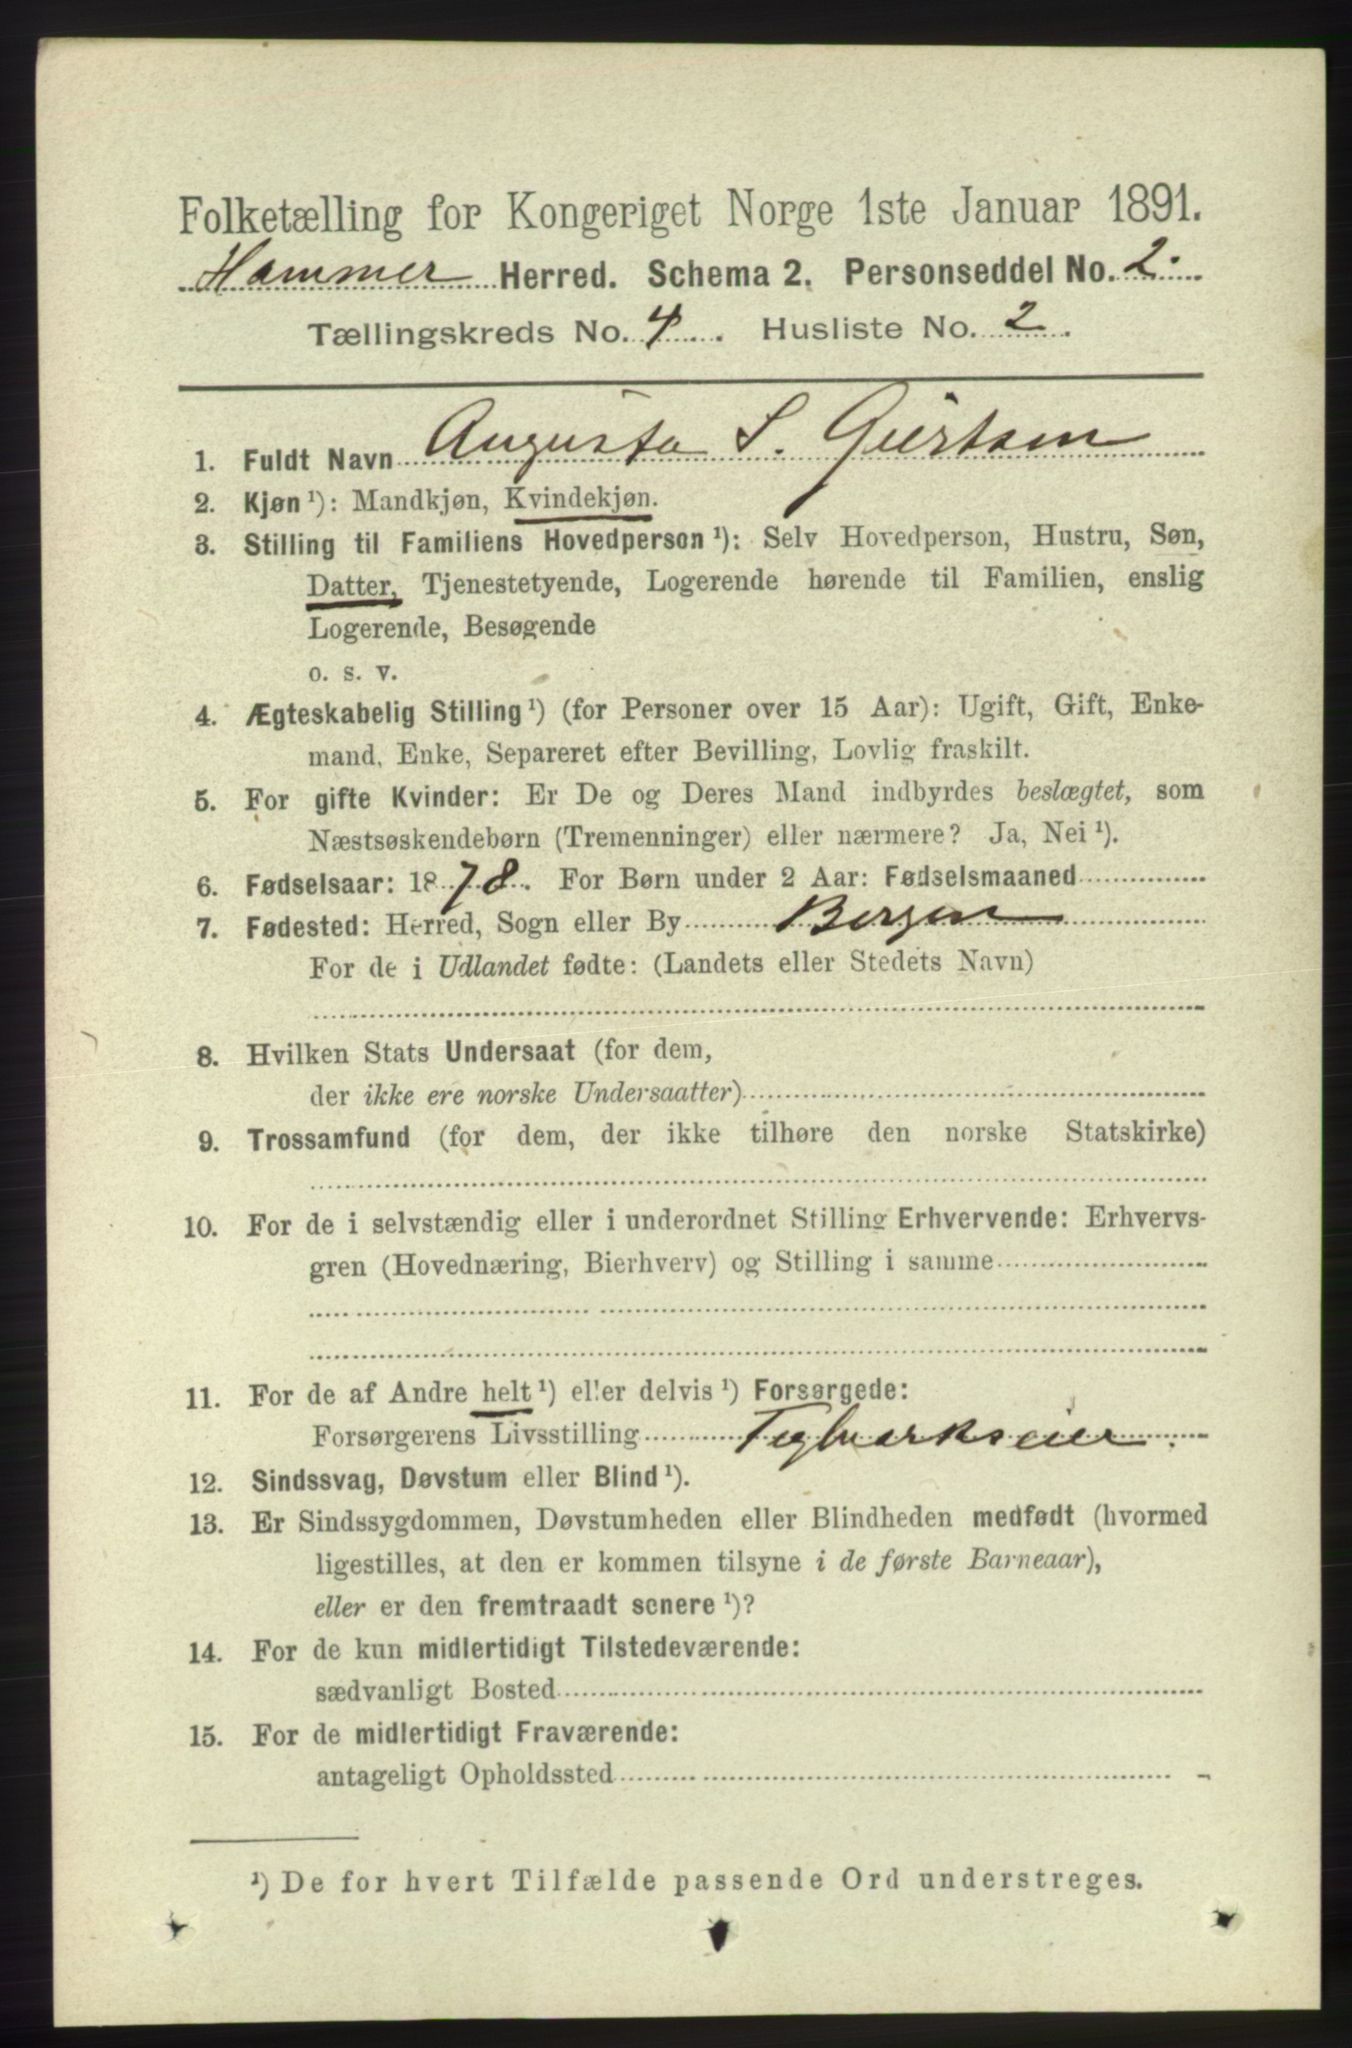 Folketælling for Kongeriget Norge 1ste Januar 1891.
Hammer Herred. Schema 2. Personseddel No. 2.
Tællingskreds No. 4. Husliste No. 2.
1. Fuldt Navn Augusta S. Giertsen
2. Kjøn ¹): Mandkjøn, Kvindekjøn.
3. Stilling til Familiens Hovedperson ¹): Selv Hovedperson, Hustru, Søn,
Datter, Tjenestetyende, Logerende hørende til Familien, enslig
Logerende, Besøgende
o. s. v.
4. Ægteskabelig Stilling ¹) (for Personer over 15 Aar): Ugift, Gift, Enke-
mand, Enke, Separeret efter Bevilling, Lovlig fraskilt.
5. For gifte Kvinder: Er De og Deres Mand indbyrdes beslægtet, som
Næstsøskendebørn (Tremenninger) eller nærmere? Ja, Nei ¹).
6. Fødselsaar: 1878. For Børn under 2 Aar: Fødselsmaaned
7. Fødested: Herred, Sogn eller By Bergen
For de i Udlandet fødte: (Landets eller Stedets Navn)
8. Hvilken Stats Undersaat (for dem,
der ikke ere norske Undersaatter)
9. Trossamfund (for dem, der ikke tilhøre den norske Statskirke)
10. For de i selvstændig eller i underordnet Stilling Erhvervende: Erhvervs-
gren (Hovednæring, Bierhverv) og Stilling i samme
11. For de af Andre helt ¹) eller delvis ¹) Forsørgede:
Forsørgerens Livsstilling Teglværkseier.
12. Sindssvag, Døvstum eller Blind ¹).
13. Er Sindssygdommen, Døvstumheden eller Blindheden medfødt (hvormed
ligestilles, at den er kommen tilsyne i de første Barneaar),
eller er den fremtraadt senere ¹)?
14. For de kun midlertidigt Tilstedeværende:
sædvanligt Bosted
15. For de midlertidigt Fraværende:
antageligt Opholdssted
¹) De for hvert Tilfælde passende Ord understreges.